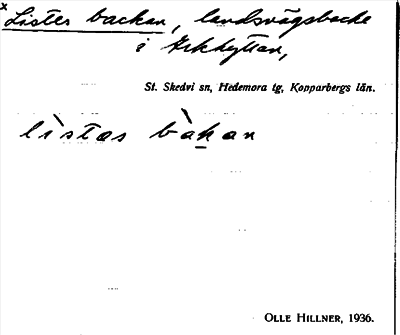 x
Listes backan, landsvägsbacke
i Arkhyttan,
St. Skedvi sn, Hedemora tg, Kopparbergs län.
lìstas bàkan
OLLE HILLNER, 1936.